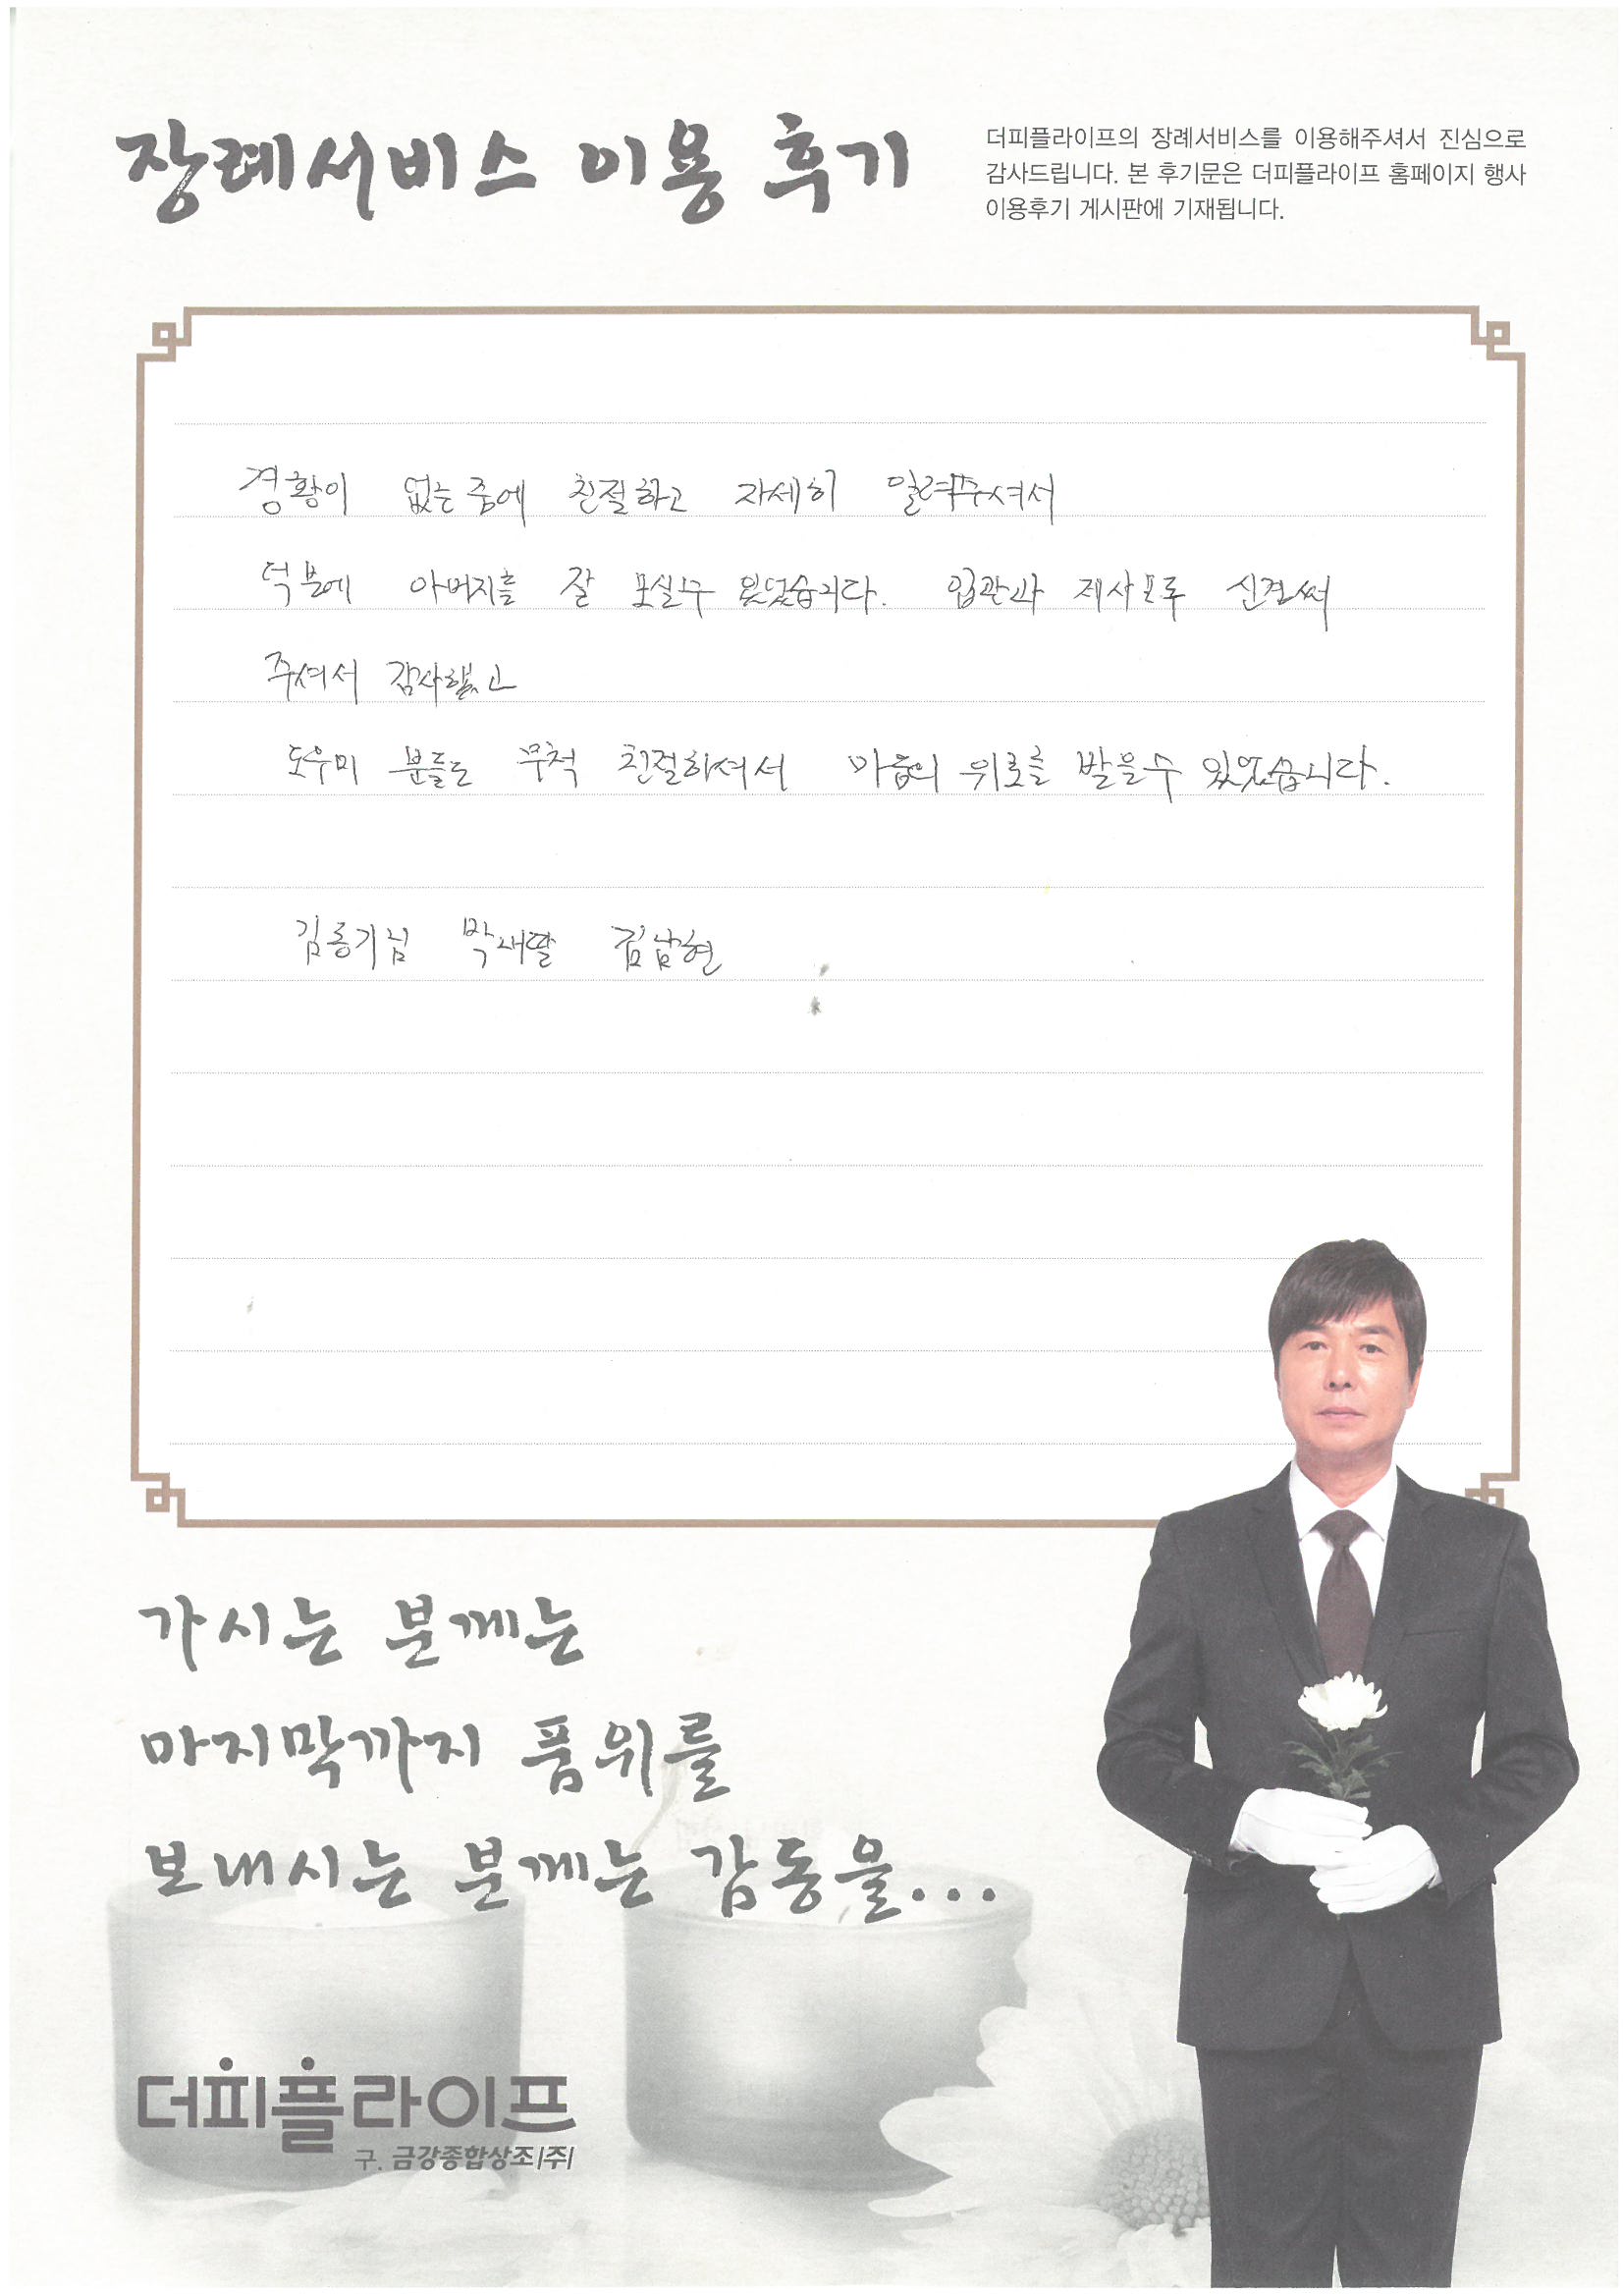 장례서비스 이용 후기
더피플라이프의 장례서비스를 이용해주셔서 진심으로
감사드립니다. 본 후기문은 더피플라이프 홈페이지 행사
이용후기 게시판에 기재됩니다.
경황이 없는중에 친절하고 자세히 알려주셔서
덕분에 아버지를 잘 모실수 있었습니다. 입관과 제사모두 신경써
주셔서 감사했고
도우미 분들도 무척 친절하셔서 마음의 위로를 받을수 있었습니다.
막내딸 김남현
가시는 분께는
마지막까지 품위를
보내시는 분께는 감동을...
더피플라이프
구. 금강종합상조(주)